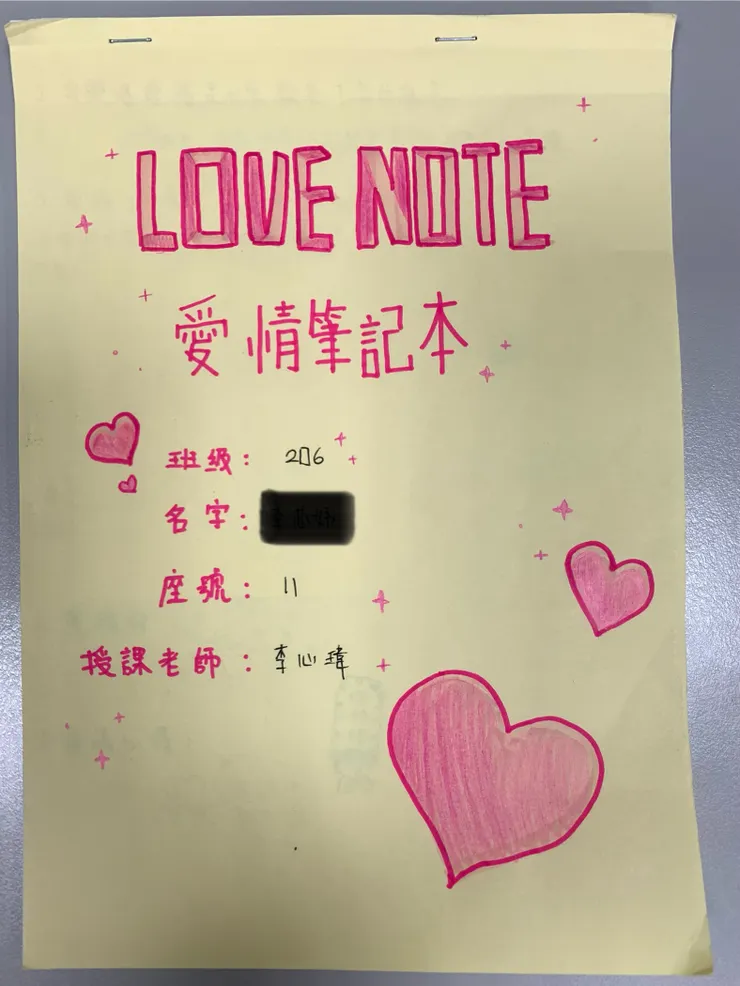 LOVE NOTE
愛情筆記本
班級： 206
名字：
座號： 11
授課老師： 李心瑋